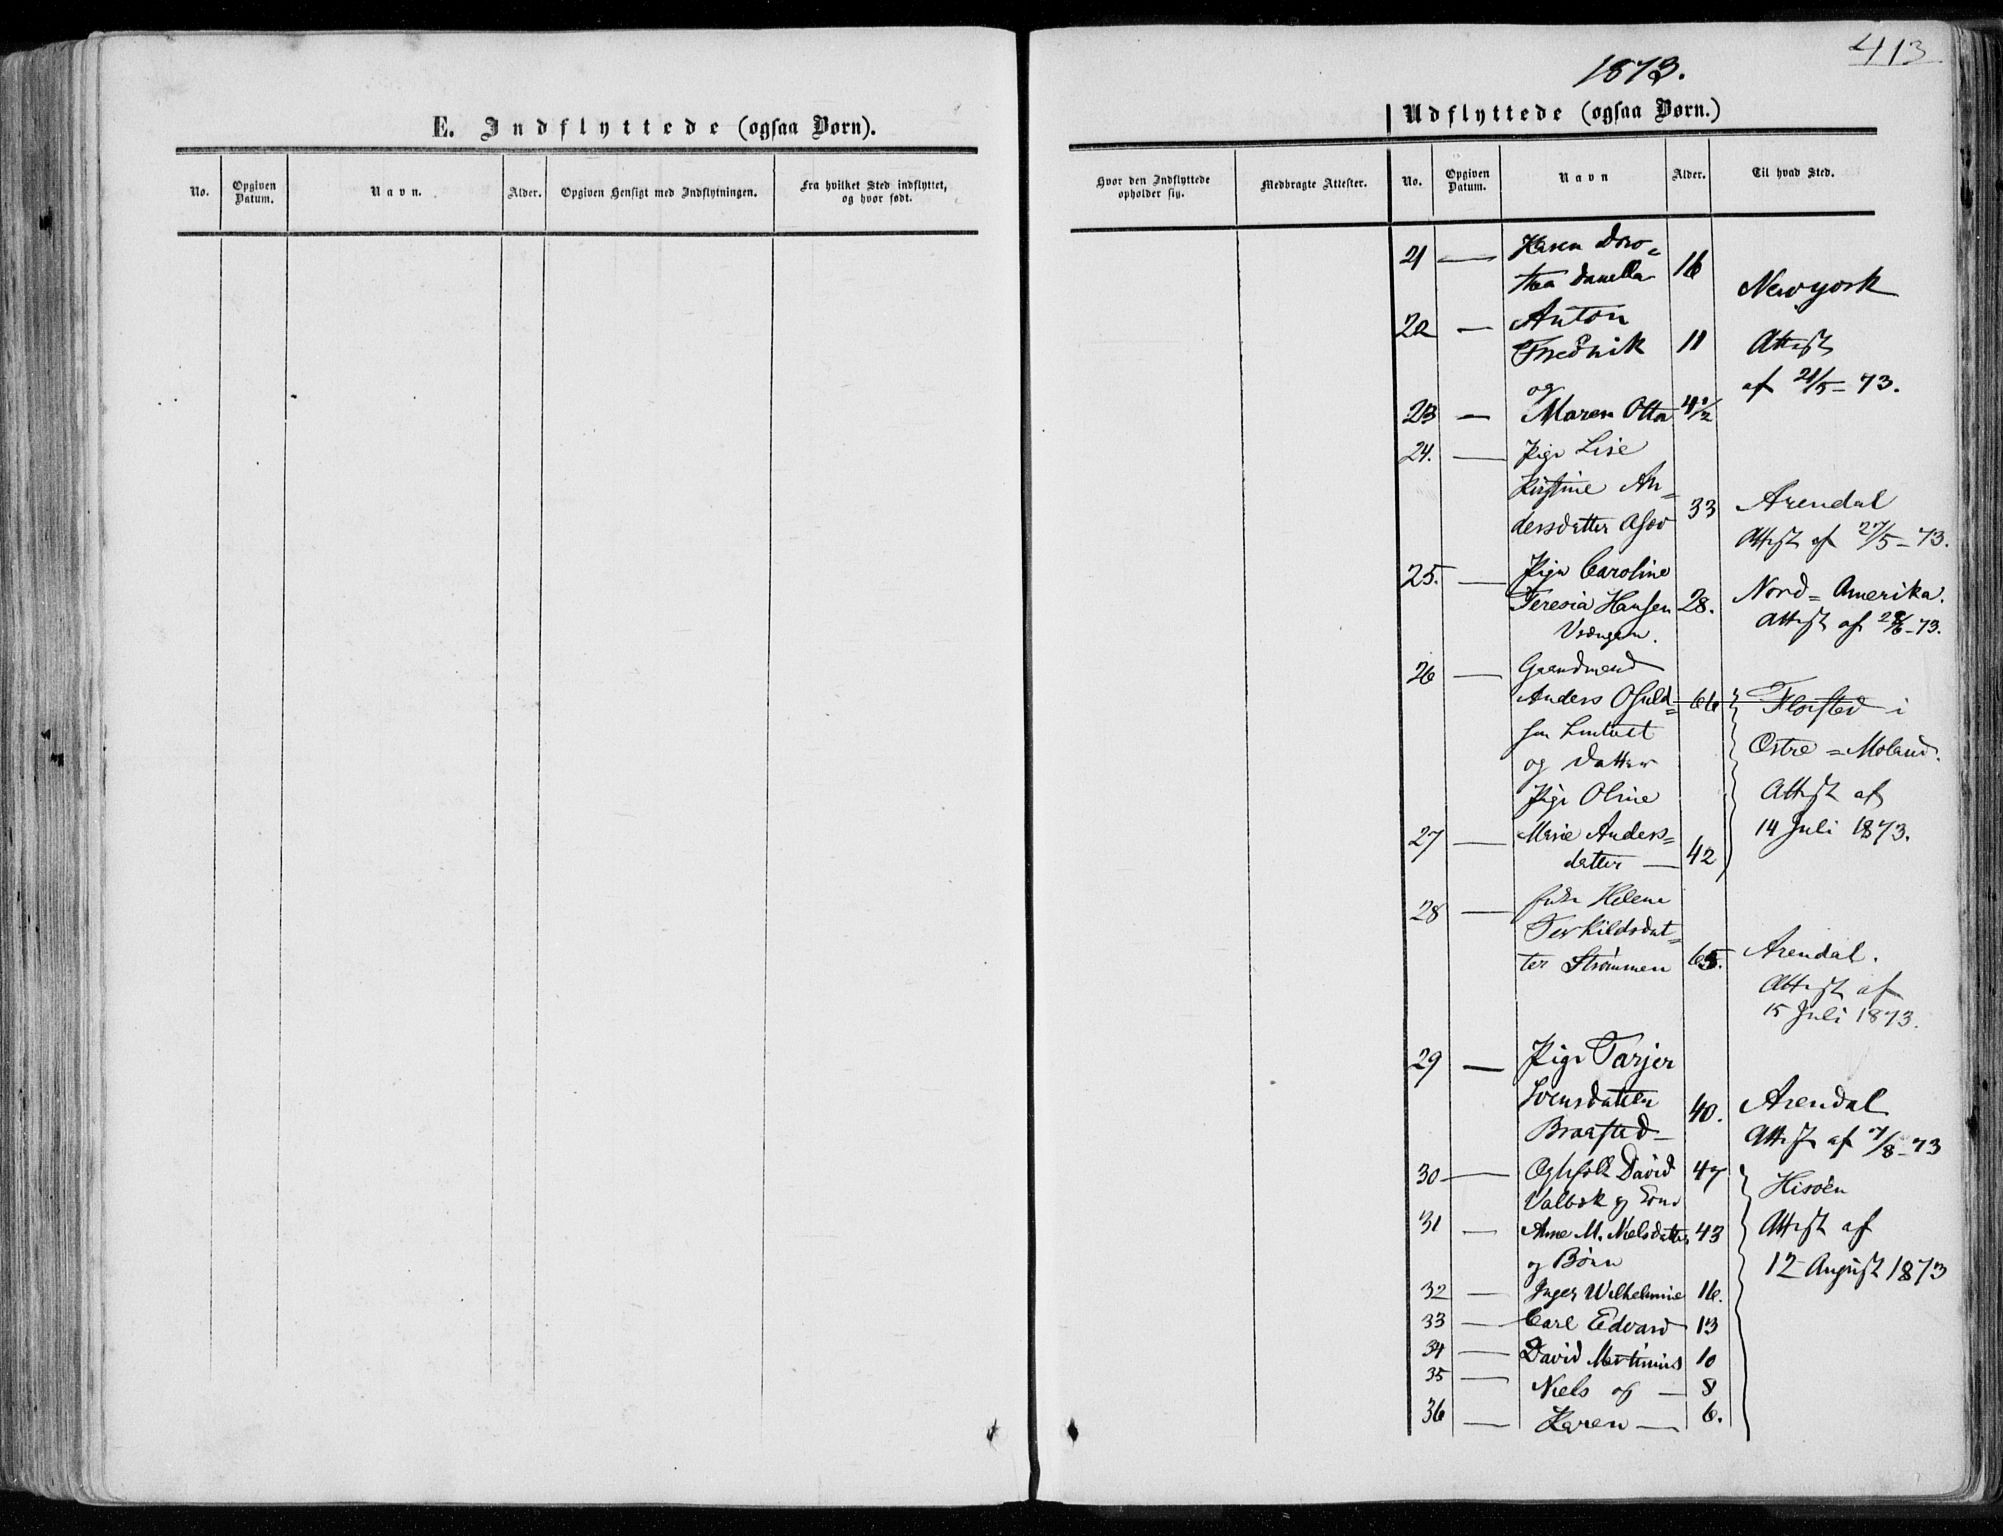 413
1873.
E. Indflyttede (ogsaa Børn).
Udflyttede (ogsaa Børn.)
No. Opgiven Datum. Navn. Alder. Opgiven Hensigt med Indflytningen. Fra hvilket Sted indflyttet, og hvor født.
Hvor den Indflyttede opholder sig. Medbragte Attester. No. Opgiven Datum. Navn Alder. Til hvad Sted.
21 — Karen Doro=
thea Danella 16
Newyork
22 — Anton
Fredrik 11 Attest
og af 21/5 - 73.
23 — Maren Otta 4 1/2
24. — Pige Lise
Kirstine An=
dersdatter 33 Arendal
Attest af 27/5 - 73.
25. — Pige Caroline
Teresia Hansen 28. Nord=Amerika.
Vrængen. Attest af 28/6 - 73.
26 — Gaardmand
Anders Osuld= 66 Flosted i
sen
Østre=Moland.
og Datter
Attest af
Pige Oline
14 Juli 1873.
27 — Marie Anders=
datter — 42
28 — Helene
Terkildsdat=
ter Strømmen 65. Arendal.
Attest af
15 Juli 1873.
29 — Pige Tarjer
Svensdatter 40. Arendal
Braasted — Attest af 7/8 - 73
30 — David 47 Hisøen
Valbek og
31 — Anne M. Nielsdatter 43 Attest af
og Børn
12 August 1873
32 — Inger Wilhelmine 16.
33 — Carl Edvard 13
34 — David Martinius 10
35 — Niels og — 8
36 — Karen — 6.